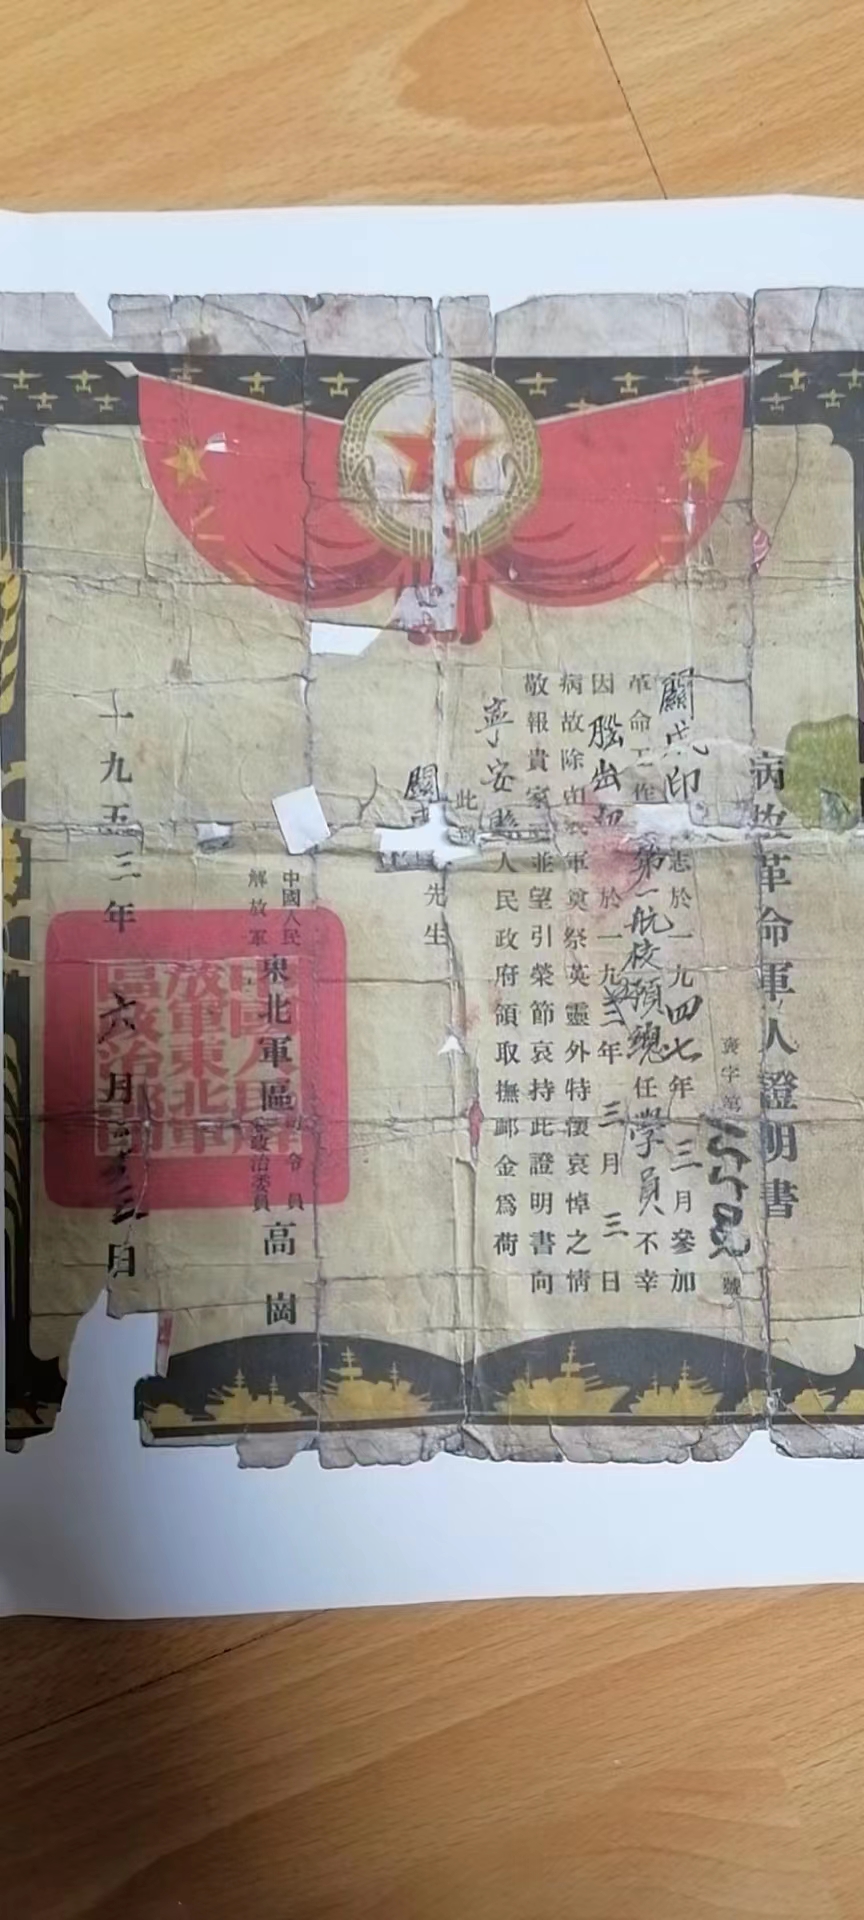 病故革命軍人證明書
褒字第 號
關成印 志於一九四七年三月參加
革命工作 第一航校預總任學員不幸
因腦出 於一九五三年三月三日
病故除由我軍奠祭英靈外特懷哀悼之情
敬報貴家 並望引榮節哀持此證明書向
寧安縣人民政府領取撫卹金爲荷
此致
關 先生
中國人民解放軍東北軍區司令員政治委員高崗
中國人民解放軍東北軍區政治部印
一九五三年六月 日